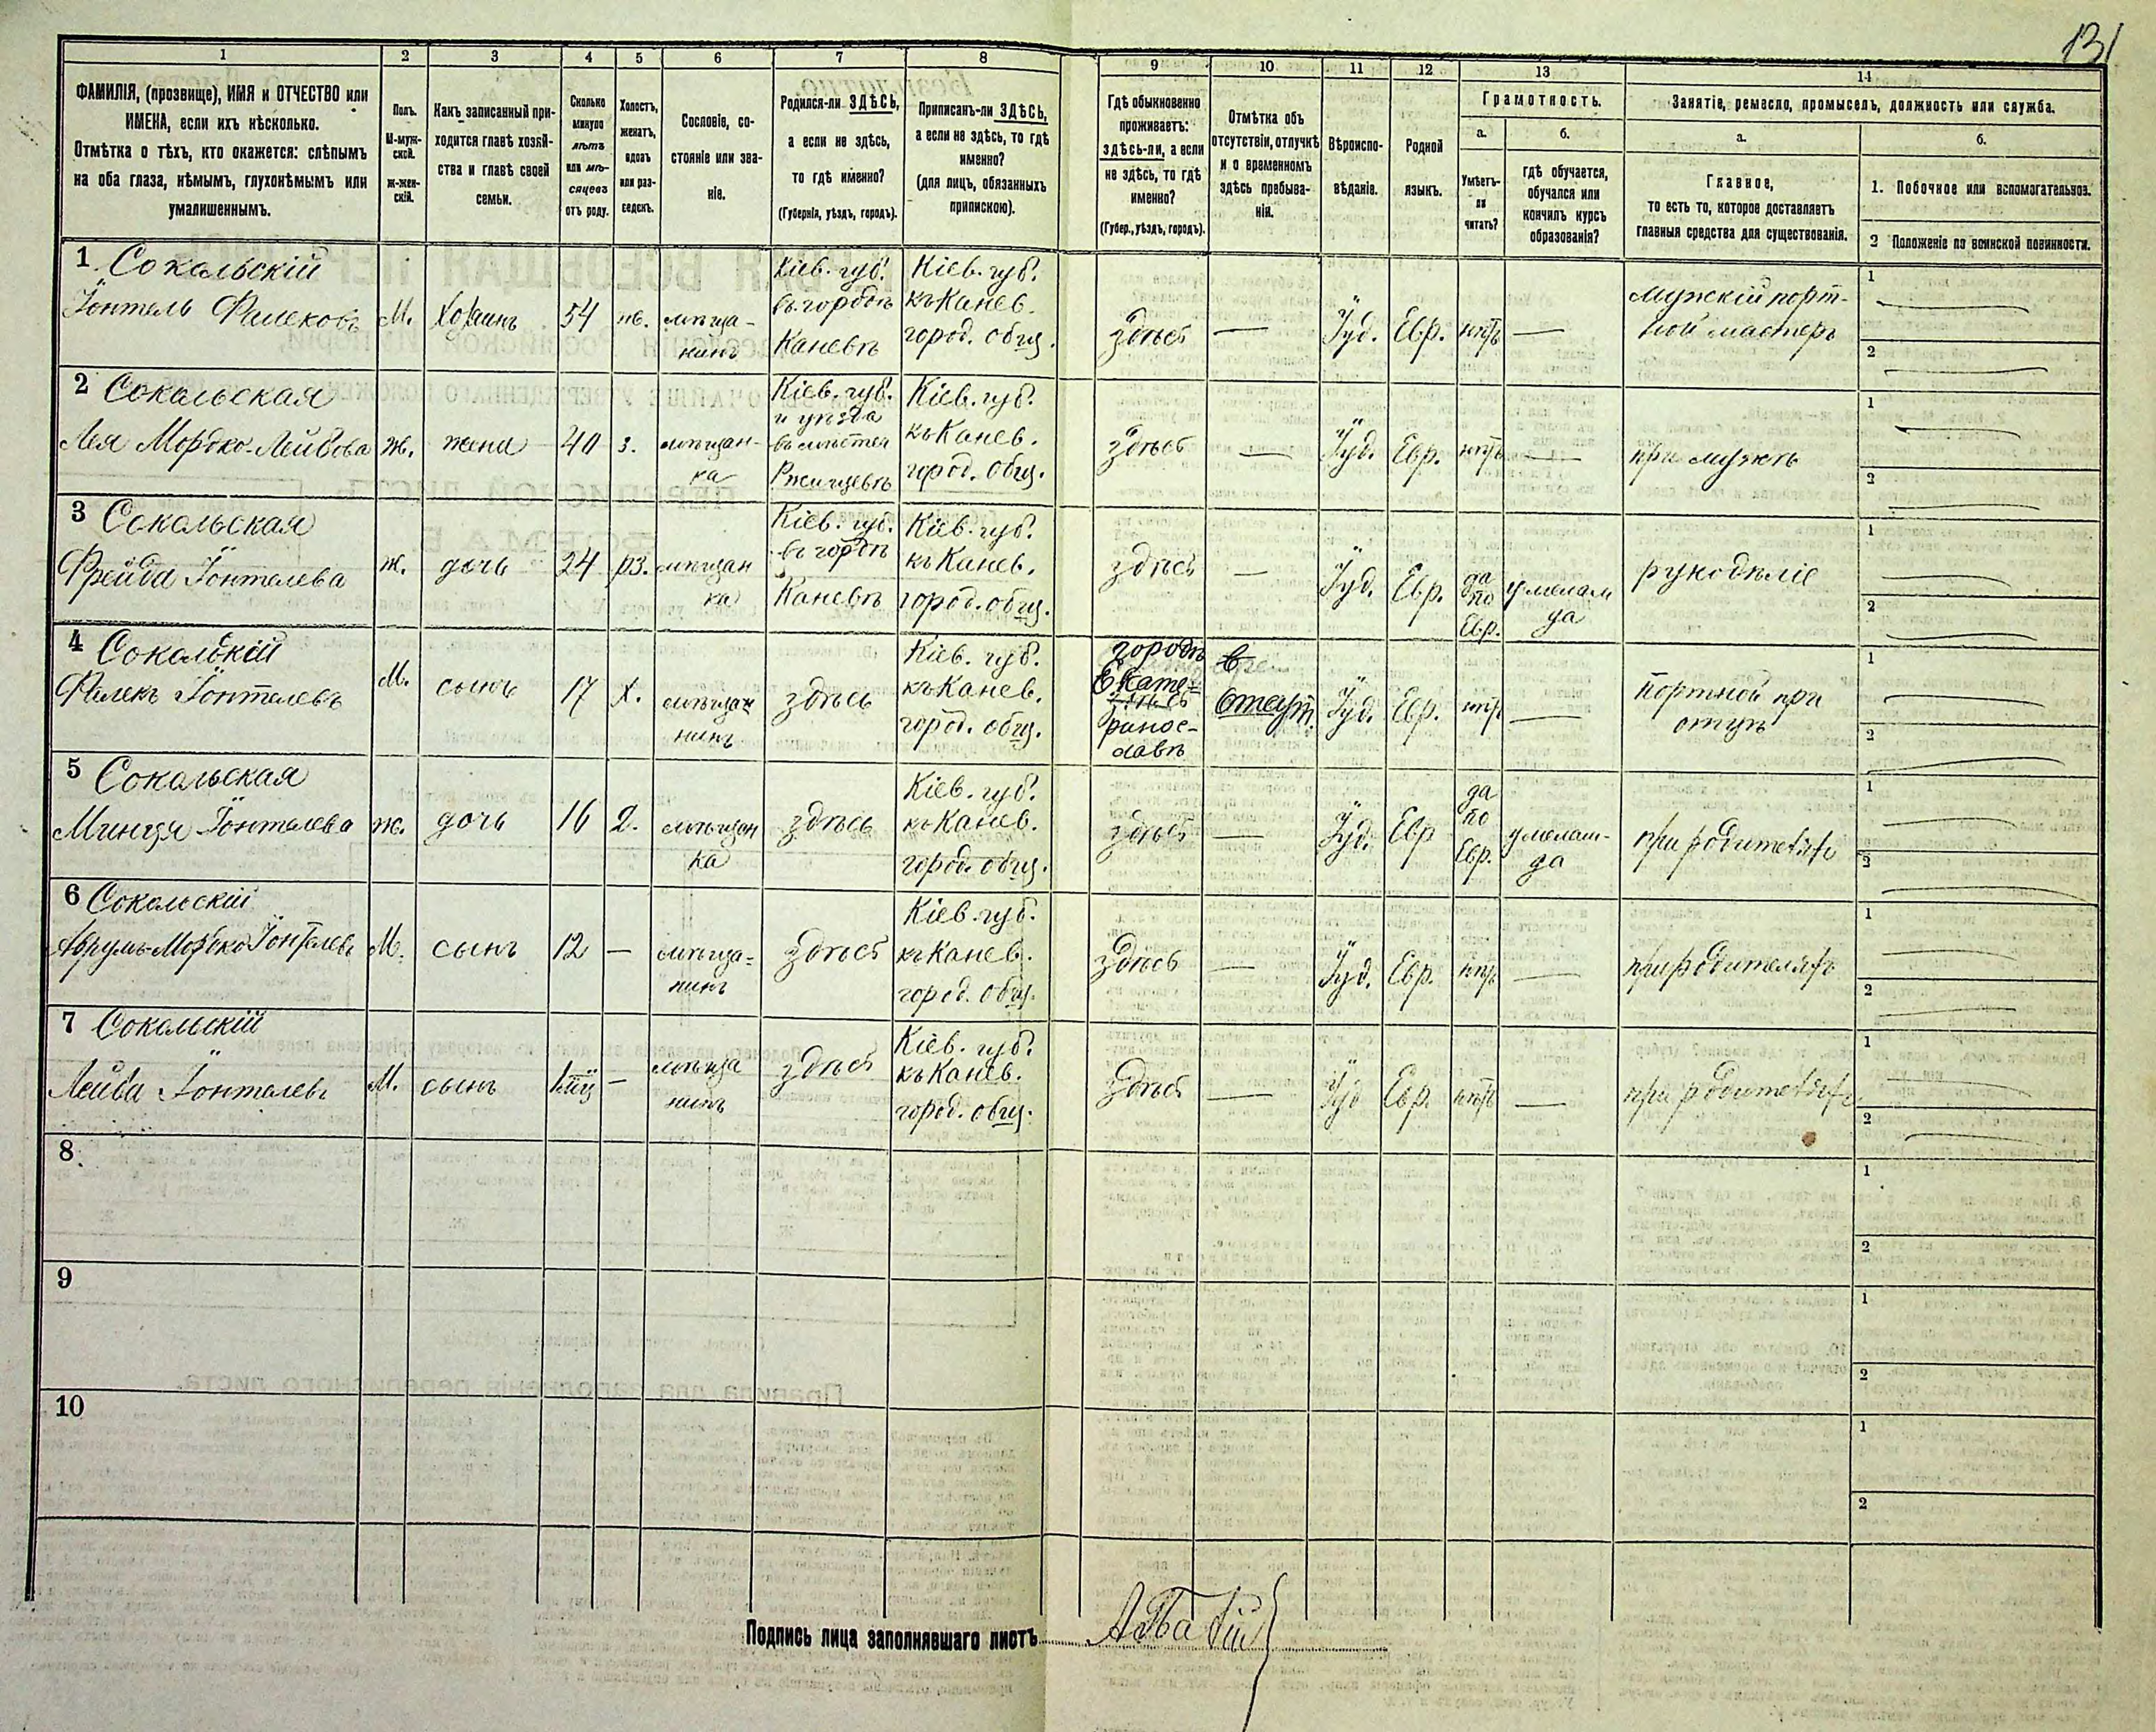 131
1
2
3
4
5
6
7
8
9
10
11
12
13
14
ФАМИЛІЯ, (прозвище), ИМЯ и ОТЧЕСТВО или
ИМЕНА, если ихъ нѣсколько.
Отмѣтка о тѣхъ, кто окажется: слѣпымъ
на оба глаза, нѣмымъ, глухонѣмымъ или
умалишеннымъ.
Полъ.
М-муж-
ской.
Ж-жен-
скій.
Какъ записанный при-
ходится главѣ хозяй-
ства и главѣ своей
семьи.
Сколько
минуло
лѣтъ
или мѣ-
сяцевъ
отъ роду.
Холостъ,
женатъ,
вдовъ
или раз-
веденъ.
Сословіе, со-
стояніе или зва-
ніе.
Родился-ли ЗДѢСЬ,
а если не здѣсь,
то гдѣ именно?
(Губернія, уѣздъ, городъ).
Приписанъ-ли ЗДѢСЬ,
а если не здѣсь, то гдѣ
именно?
(для лицъ, обязанныхъ
припискою).
Гдѣ обыкновенно
проживаетъ:
здѣсь-ли, а если
не здѣсь, то гдѣ
именно?
(Губер., уѣздъ, городъ).
Отмѣтка объ
отсутствіи, отлучкѣ
и о временномъ
здѣсь пребыва-
ніи.
Вѣроиспо-
вѣданіе.
Родной
языкъ.
Грамотность.
а.
Умѣетъ-
ли
читать?
б.
гдѣ обучается,
обучался или
кончилъ курсъ
образованія?
Занятіе, ремесло, промыселъ, должность или служба.
а.
Главное,
то есть то, которое доставляетъ
главныя средства для существованія.
б.
1. Побочное или вспомогательное.
2 Положеніе по воинской повинности.
1 Сокальскій
Іонтель Фалековъ
М.
Хозяинъ
54
ж.
мѣща-
нинъ
Кіев. губ.
въ городѣ
Каневѣ
Кіев. губ.
къ Канев.
город. общ.
здѣсь
—
Іуд.
Евр.
нѣтъ
—
мужскій порт-
ной мастеръ
1
2
2 Сокальская
Лея Мордко-Лейбова
ж.
жена
40
з.
мѣщан-
ка
Кіев. губ.
и уѣзда
въ мѣстеч
Ржищевѣ
Кіев. губ.
къ Канев.
город. общ.
здѣсь
—
Іуд.
Евр.
нѣтъ
—
при мужѣ
1
2
3 Сокальская
Фрейда Іонтелева
ж.
дочь
24
рз.
мѣщан
ка
Кіев. губ.
въ городѣ
Каневѣ
Кіев. губ.
къ Канев.
город. общ.
здѣсь
—
Іуд.
Евр.
да
по
Евр.
у мелам
да
рукодѣліе
1
2
4 Сокальскій
Фалекъ Іонтелевъ
М.
сынъ
17
х.
мѣщан
нинъ
здѣсь
Кіев. губ.
къ Канев.
город. общ.
городъ
Екате-
ринос-
лавъ
Отсут.
Іуд.
Евр.
нѣтъ
—
портной при
отцѣ
1
2
5 Сокальская
Минця Іонтелева
ж.
дочь
16
д.
мѣщан
ка
здѣсь
Кіев. губ.
къ Канев.
город. общ.
здѣсь
—
Іуд.
Евр
да
по
Евр.
у мелам-
да
при родителяхъ
1
2
6 Сокальскій
Аврумъ-Мордко Іонтелевъ
М.
сынъ
12
—
мѣща-
нинъ
здѣсь
Кіев. губ.
къ Канев.
город. общ.
здѣсь
—
Іуд.
Евр.
нѣтъ
—
при родителяхъ
1
2
7 Сокальскій
Лейба Іонтелевъ
М.
сынъ
—
мѣща
нинъ
здѣсь
Кіев. губ.
къ Канев.
город. общ.
здѣсь
—
Іуд
Евр.
нѣтъ
—
при родителяхъ
1
2
8
1
2
9
1
2
10
1
2
Подпись лица заполнявшаго листъ